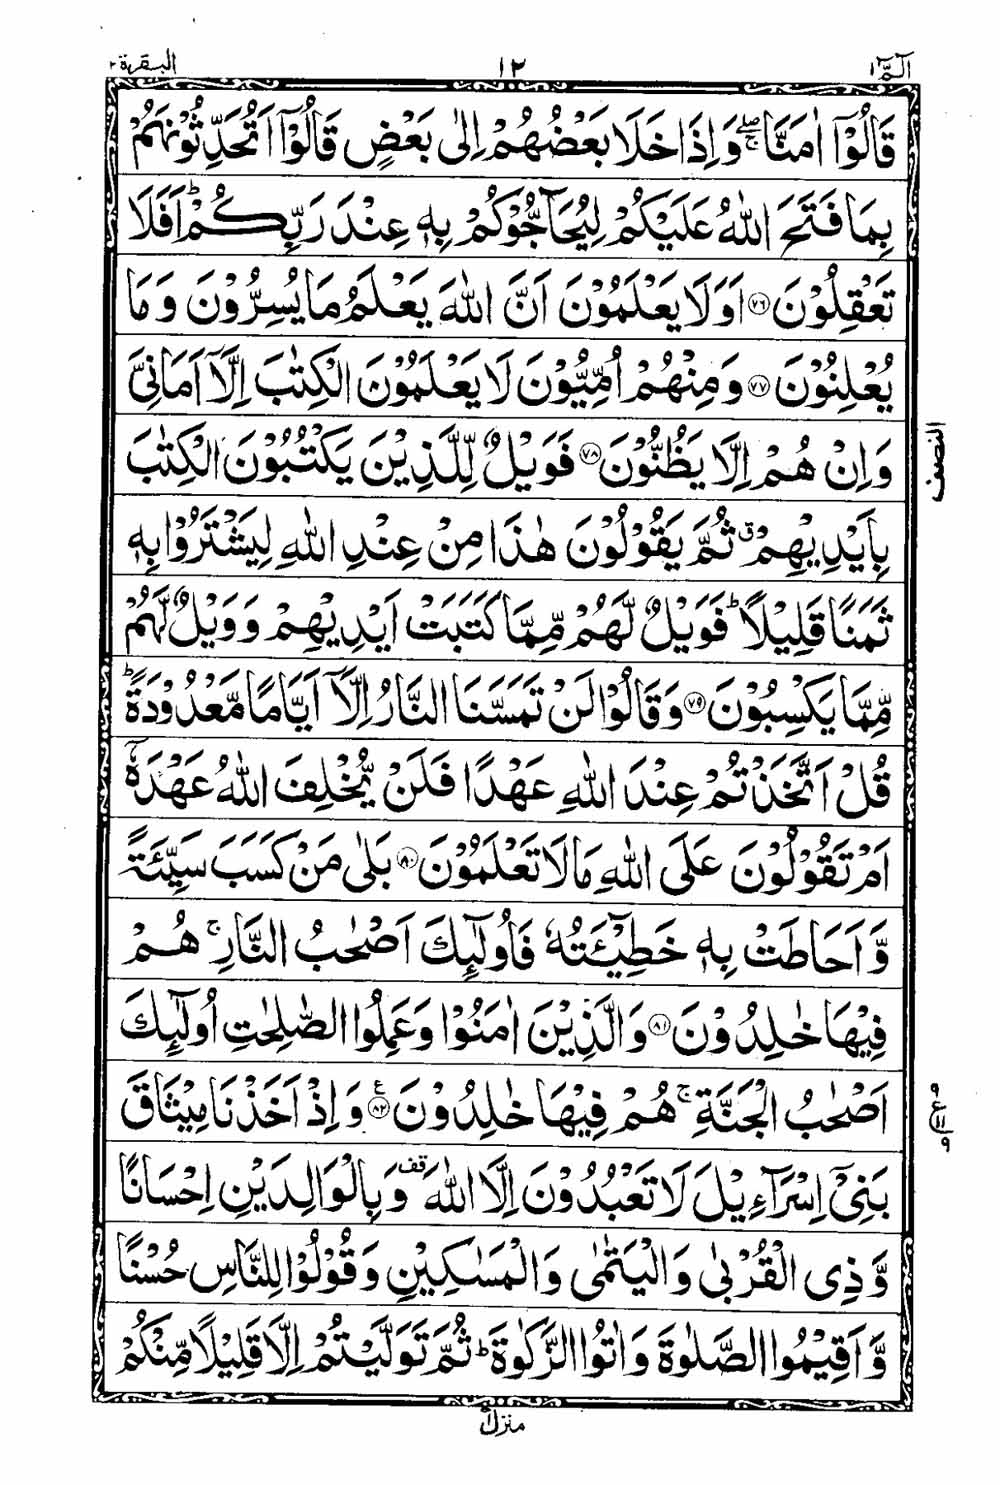 الٓمّٓ ١
١٢
البقرة ٢
قَالُوْۤا اٰمَنَّا ۖۚ وَاِذَا خَلَا بَعْضُهُمْ اِلٰى بَعْضٍ قَالُوْۤا اَتُحَدِّثُوْنَهُمْ
بِمَا فَتَحَ اللّٰهُ عَلَيْكُمْ لِيُحَآجُّوْكُمْ بِهٖ عِنْدَ رَبِّكُمْ ؕ اَفَلَا
تَعْقِلُوْنَ ﴿٧٦﴾ اَوَلَا يَعْلَمُوْنَ اَنَّ اللّٰهَ يَعْلَمُ مَا يُسِرُّوْنَ وَمَا
يُعْلِنُوْنَ ﴿٧٧﴾ وَمِنْهُمْ اُمِّيُّوْنَ لَا يَعْلَمُوْنَ الْكِتٰبَ اِلَّاۤ اَمَانِىَّ
وَاِنْ هُمْ اِلَّا يَظُنُّوْنَ ﴿٧٨﴾ فَوَيْلٌ لِّلَّذِيْنَ يَكْتُبُوْنَ الْكِتٰبَ
النصف
بِاَيْدِيْهِمْ ۗ ثُمَّ يَقُوْلُوْنَ هٰذَا مِنْ عِنْدِ اللّٰهِ لِيَشْتَرُوْا بِهٖ
ثَمَنًا قَلِيْلًا ؕ فَوَيْلٌ لَّهُمْ مِّمَّا كَتَبَتْ اَيْدِيْهِمْ وَوَيْلٌ لَّهُمْ
مِّمَّا يَكْسِبُوْنَ ﴿٧٩﴾ وَقَالُوْا لَنْ تَمَسَّنَا النَّارُ اِلَّاۤ اَيَّامًا مَّعْدُوْدَةً ؕ
قُلْ اَتَّخَذْتُمْ عِنْدَ اللّٰهِ عَهْدًا فَلَنْ يُّخْلِفَ اللّٰهُ عَهْدَهٗۤ
اَمْ تَقُوْلُوْنَ عَلَى اللّٰهِ مَا لَا تَعْلَمُوْنَ ﴿٨٠﴾ بَلٰى مَنْ كَسَبَ سَيِّئَةً
وَّاَحَاطَتْ بِهٖ خَطِيْٓئَتُهٗ فَاُولٰٓئِكَ اَصْحٰبُ النَّارِ ۚ هُمْ
فِيْهَا خٰلِدُوْنَ ﴿٨١﴾ وَالَّذِيْنَ اٰمَنُوْا وَعَمِلُوا الصّٰلِحٰتِ اُولٰٓئِكَ
اَصْحٰبُ الْجَنَّةِ ۚ هُمْ فِيْهَا خٰلِدُوْنَ ﴿٨٢﴾ ع وَاِذْ اَخَذْنَا مِيْثَاقَ
٩ ع ١١ ٩
بَنِىْۤ اِسْرَآءِيْلَ لَا تَعْبُدُوْنَ اِلَّا اللّٰهَ قف وَبِالْوَالِدَيْنِ اِحْسَانًا
وَّذِى الْقُرْبٰى وَالْيَتٰمٰى وَالْمَسٰكِيْنِ وَقُوْلُوْا لِلنَّاسِ حُسْنًا
وَّاَقِيْمُوا الصَّلٰوةَ وَاٰتُوا الزَّكٰوةَ ؕ ثُمَّ تَوَلَّيْتُمْ اِلَّا قَلِيْلًا مِّنْكُمْ
منزل ١